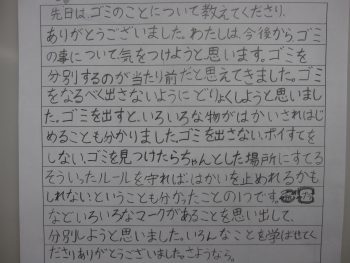 先日は、ゴミのことについて教えてくださり、
ありがとうございました。わたしは、今後からゴミ
の事について気をつけようと思います。ゴミを
分別するのが当たり前だと思えてきました。ゴミ
をなるべく出さないようにどりょくしようと思いまし
た。ゴミを出すと、いろいろな物がはかいされはじ
めることも分かりました。ゴミを出さない、ポイすてを
しない、ゴミを見つけたらちゃんとした場所にすてる
そういったルールを守れば、はかいを止めれるかも
しれないということも分かったことの1つです。
などいろいろなマークがあることを思い出して、
分別しようと思いました。いろんなことを学ばせてく
ださりありがとうございました。さようなら。